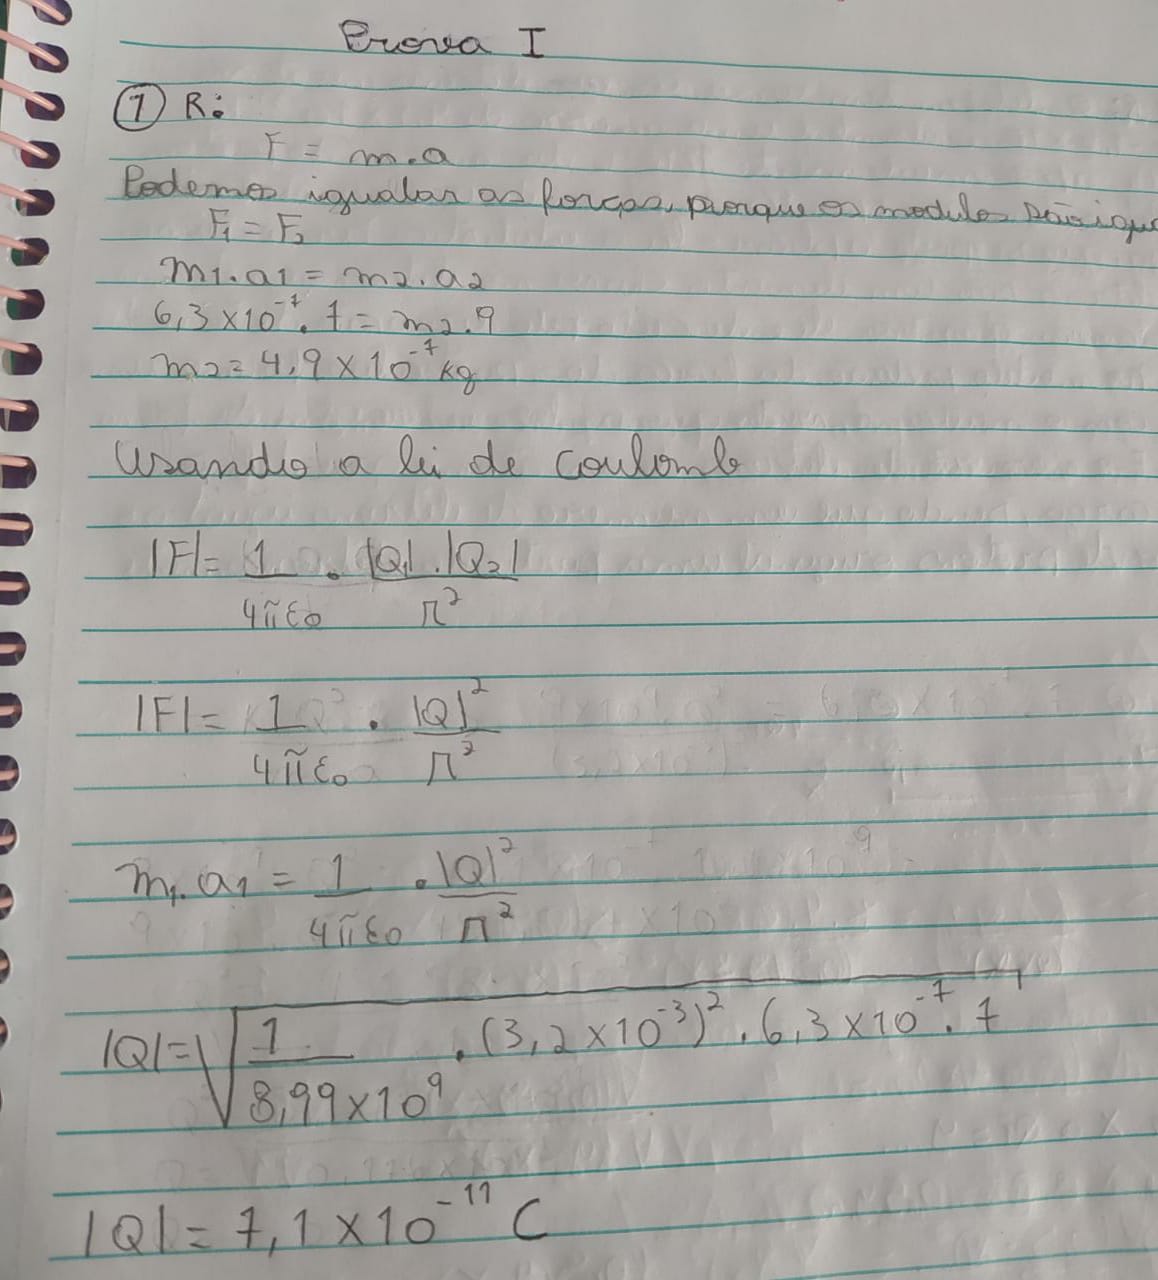 Prova I
① R:
F = m.a
Podemos igualar as forças, porque os modulos são igu
F₁ = F₂
m1.a1 = m2.a2
6,3 x10⁻⁷. 7 = m2.9
m2 = 4,9 x 10⁻⁷ kg
Usando a lei de Coulomb
|F| = 1/4πε₀ . |Q₁|.|Q₂|/r²
|F| = 1/4πε₀ . |Q|²/r²
m₁.a₁ = 1/4πε₀ . |Q|²/r²
|Q| = √1/8,99x10⁹ . (3,2 x10⁻³)² . 6,3 x10⁻⁷. 7
|Q| = 7,1 x 10⁻¹¹ C